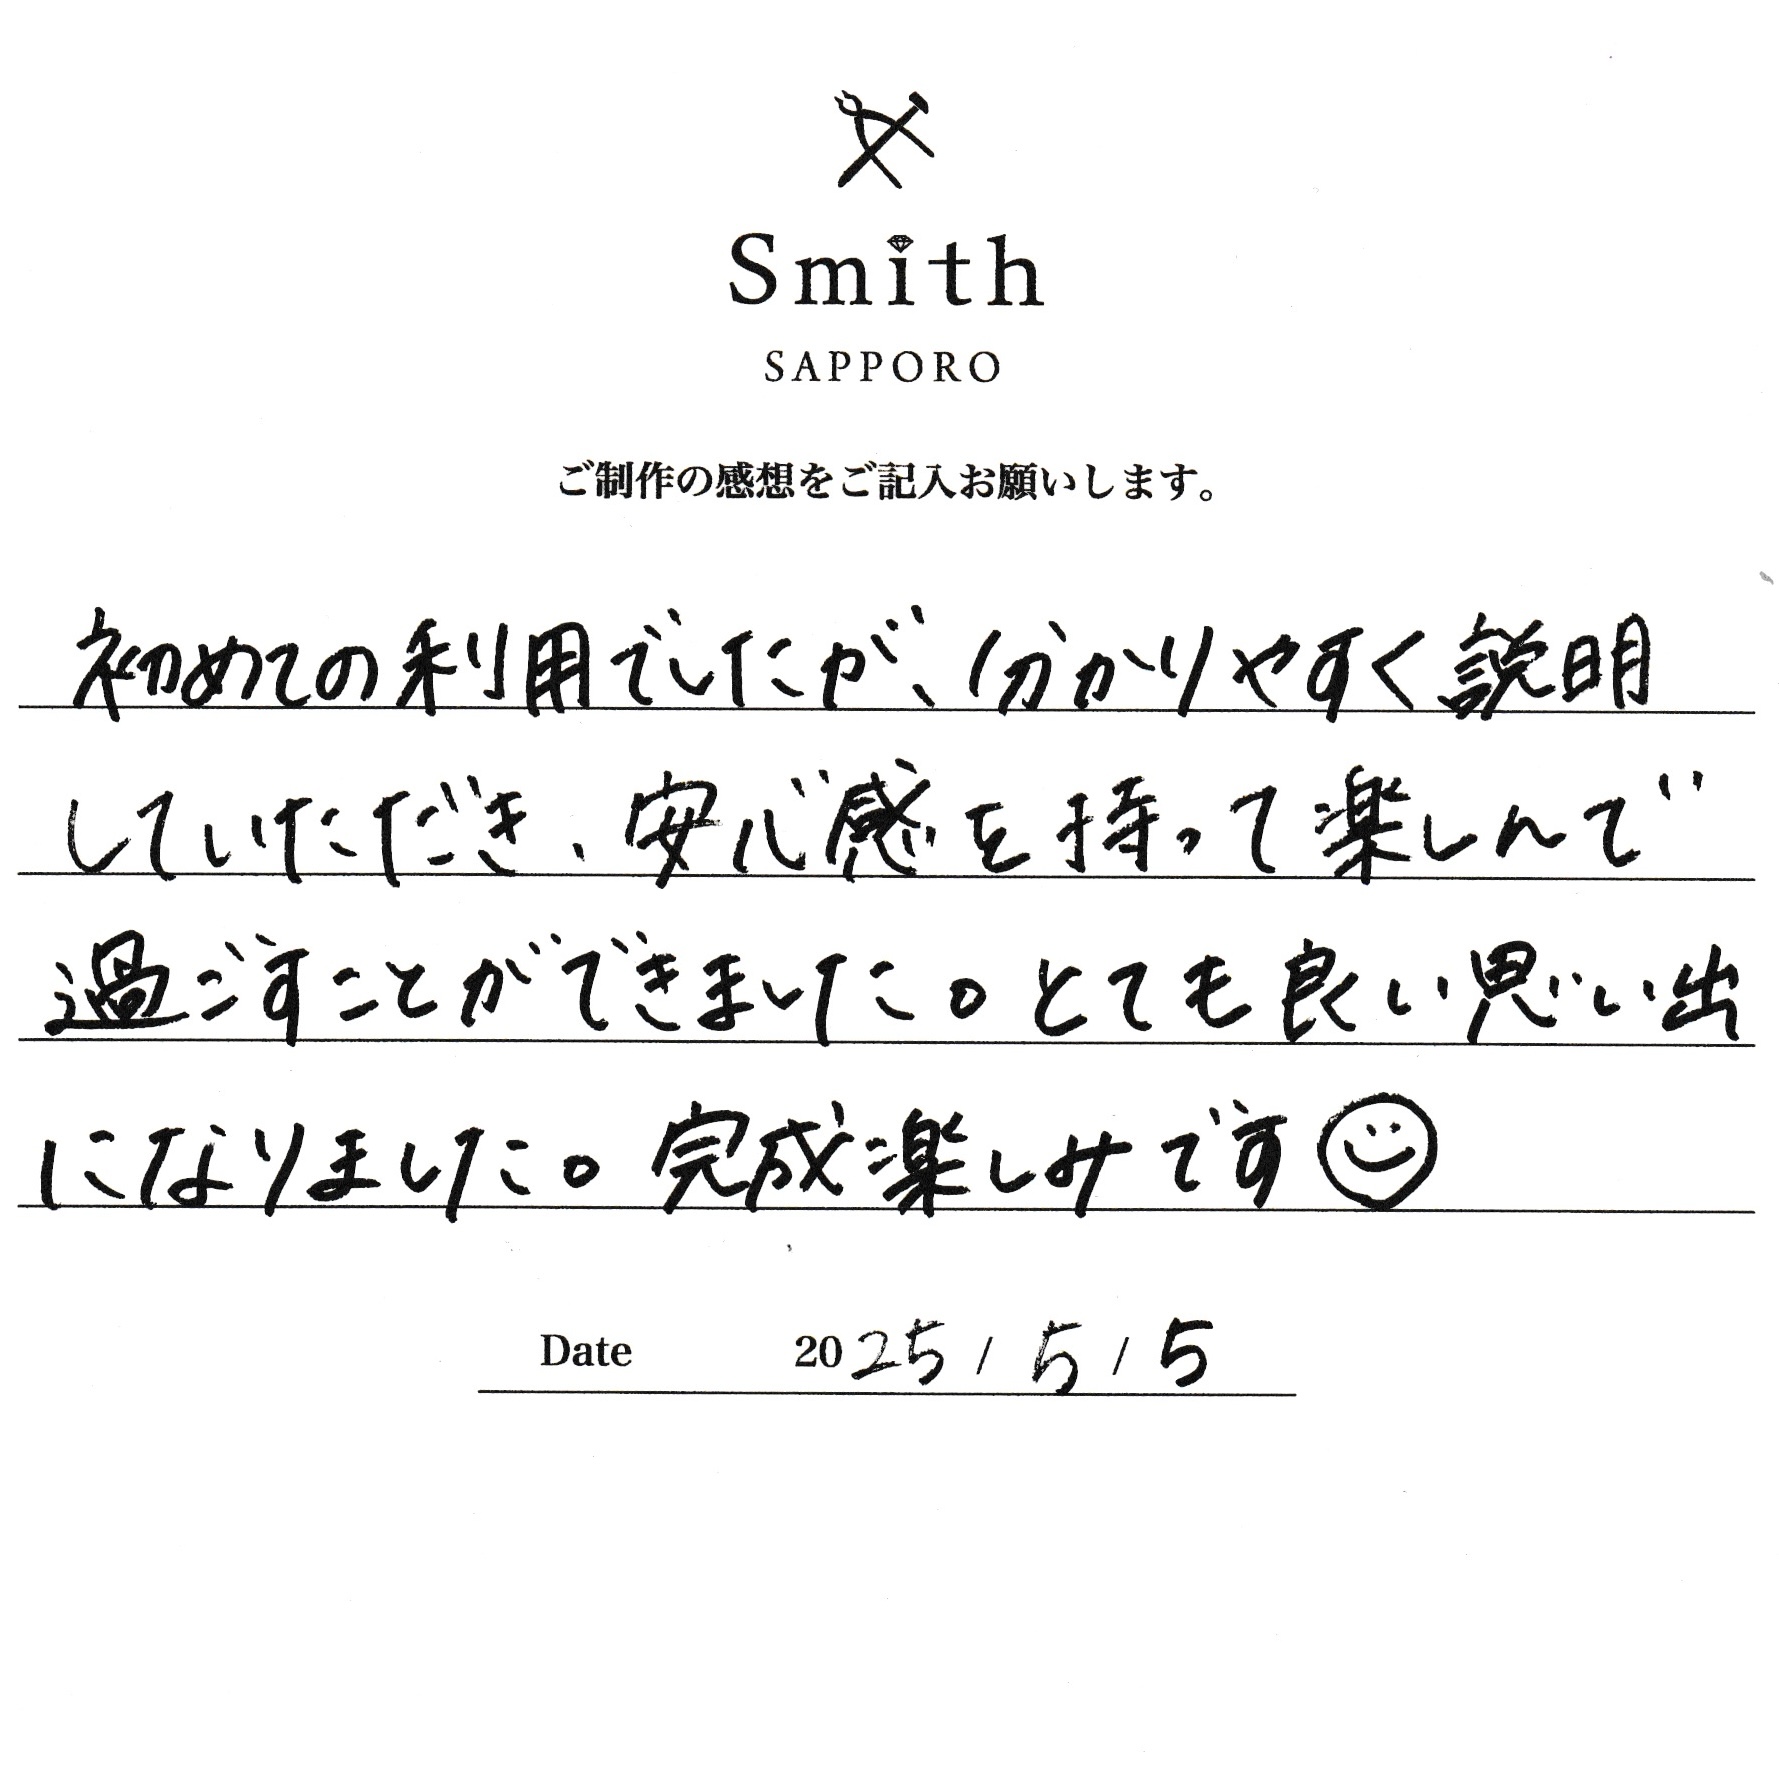 Smith
SAPPORO
ご制作の感想をご記入お願いします。
初めての利用でしたが、分かりやすく説明
していただき、安心感を持って楽しんで
過ごすことができました。とても良い思い出
になりました。完成楽しみです☺
Date 2025 / 5 / 5